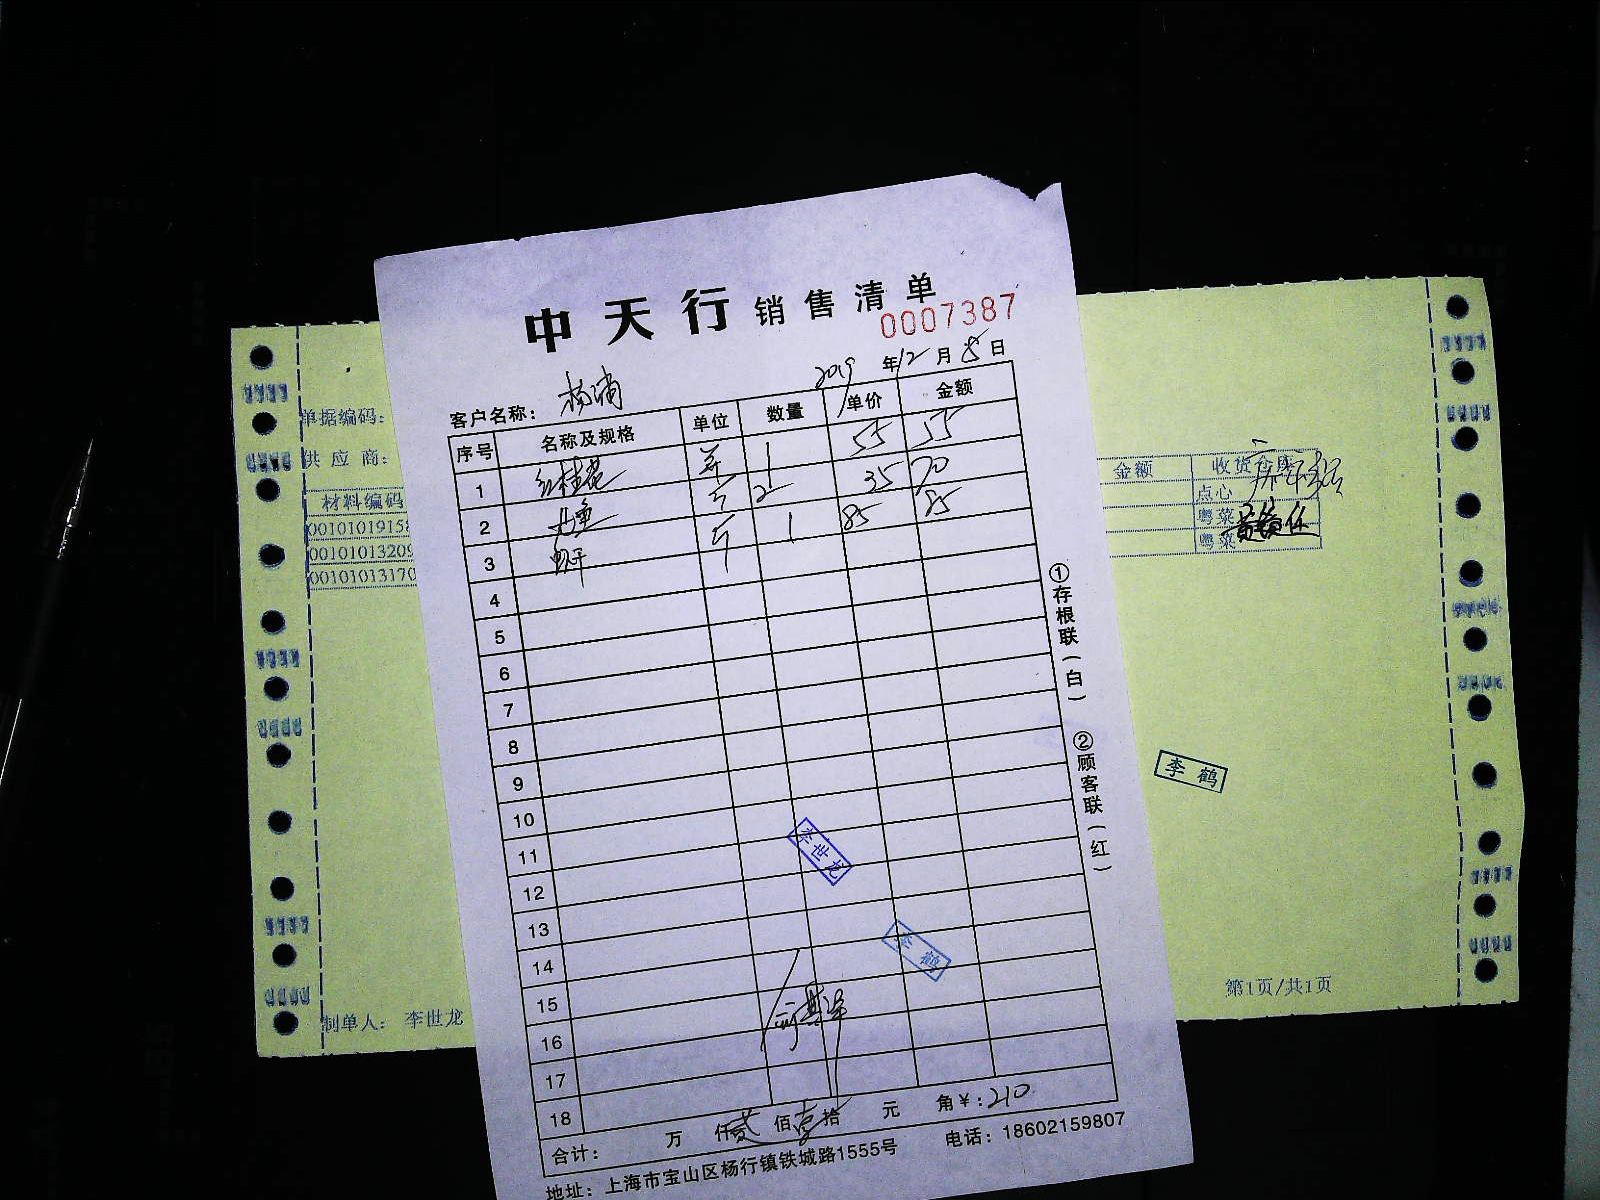 中天行 销售清单
0007387
2019年12月8日
客户名称：杨浦
序号 名称及规格 单位 数量 单价 金额
1 红桂花 斤 1 55 55
2 斤 2 35 70
3 虾干 斤 1 85 85
4
5
6
7
8
9
10
11
12
13
14
15
16
17
18
合计： 万 仟 贰 佰 壹 拾 元 角 ￥：210
地址：上海市宝山区杨行镇铁城路1555号 电话：18602159807
①存根联（白） ②顾客联（红）
李世龙
李鹤
单据编码：
供应商：
材料编码
0010101915
00101013209
00101013170
制单人： 李世龙
金额 收货仓库
点心
粤菜
粤菜
李鹤
第1页/共1页